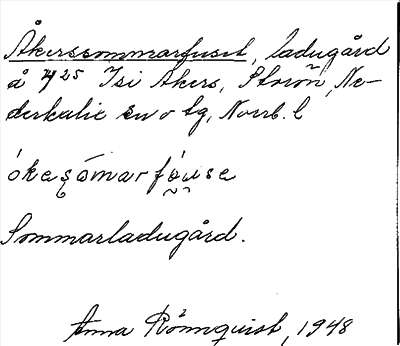 Åkerssommarfuset, ladugård
å 7/25 Isi Åkers, Storön, Ne-
derkalix sn o tg, Norrb. l
ókesǫ̈marfǫuse
Sommarladugård.
Anna Rönnquist, 1948